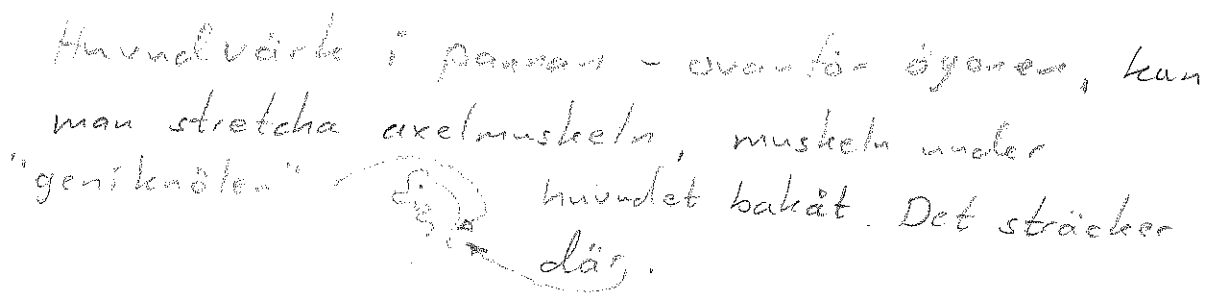 Huvudvärk i pannan - ovanför ögonen, kan
man stretcha axelmuskeln, muskeln under
"geniknölen" huvudet bakåt. Det sträcker
där.